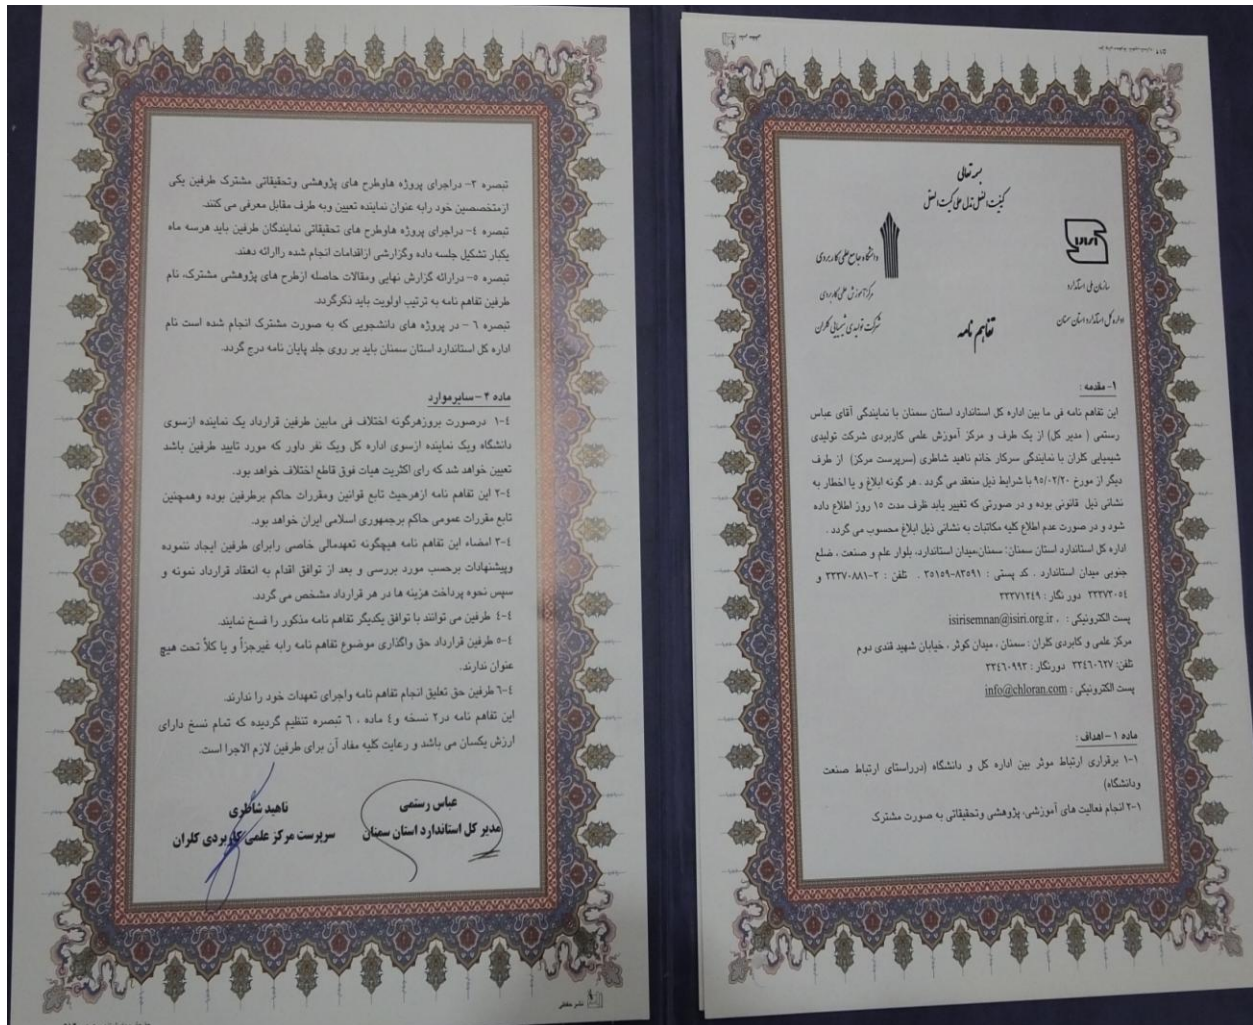 بسمه تعالی
کیفیت العمل تدل علی کمیت العقل
سازمان ملی استاندارد
اداره کل استاندارد استان سمنان
دانشگاه جامع علمی کاربردی
مرکز آموزش علمی کاربردی
شرکت تولیدی شیمیایی کلران
تفاهم نامه
۱- مقدمه :
این تفاهم نامه فی ما بین اداره کل استاندارد استان سمنان با نمایندگی آقای عباس
رستمی ( مدیر کل) از یک طرف و مرکز آموزش علمی کاربردی شرکت تولیدی
شیمیایی کلران با نمایندگی سرکار خانم ناهید شاطری (سرپرست مرکز) از طرف
دیگر از مورخ ۹۵/۰۲/۲۰ با شرایط ذیل منعقد می گردد . هر گونه ابلاغ و یا اخطار به
نشانی ذیل قانونی بوده و در صورتی که تغییر یابد ظرف مدت ۱۵ روز اطلاع داده
شود و در صورت عدم اطلاع کلیه مکاتبات به نشانی ذیل ابلاغ محسوب می گردد .
اداره کل استاندارد استان سمنان: سمنان،میدان استاندارد، بلوار علم و صنعت ، ضلع
جنوبی میدان استاندارد . کد پستی : ۸۳۵۹۱-۳۵۱۵۹ . تلفن : ۲-۳۳۳۷۰۸۸۱ و
۳۳۳۷۳۰۵۴ دور نگار : ۳۳۳۷۱۲۴۹
پست الکترونیکی : ، isirisemnan@isiri.org.ir
مرکز علمی و کابردی کلران : سمنان ، میدان کوثر ، خیابان شهید قندی دوم
تلفن: ۳۳٤٦۰٦۲۷ دورنگار : ۳۳٤٦۰۹۹۳
پست الکترونیکی : info@chloran.com
ماده ۱ – اهداف :
۱-۱ برقراری ارتباط موثر بین اداره کل و دانشگاه (درراستای ارتباط صنعت
ودانشگاه)
۲-۱ انجام فعالیت های آموزشی، پژوهشی وتحقیقاتی به صورت مشترک
تبصره ۳- دراجرای پروژه هاوطرح های پژوهشی وتحقیقاتی مشترک طرفین یکی
ازمتخصصین خود رابه عنوان نماینده تعیین وبه طرف مقابل معرفی می کنند.
تبصره ٤- دراجرای پروژه هاوطرح های تحقیقاتی نمایندگان طرفین باید هرسه ماه
یکبار تشکیل جلسه داده وگزارشی ازاقدامات انجام شده راارائه دهند.
تبصره ٥- درارائه گزارش نهایی ومقالات حاصله ازطرح های پژوهشی مشترک، نام
طرفین تفاهم نامه به ترتیب اولویت باید ذکرگردد.
تبصره ٦ - در پروژه های دانشجویی که به صورت مشترک انجام شده است نام
اداره کل استاندارد استان سمنان باید بر روی جلد پایان نامه درج گردد.
ماده ۴ – سایرموارد
۱-٤ درصورت بروزهرگونه اختلاف فی مابین طرفین قرارداد یک نماینده ازسوی
دانشگاه ویک نماینده ازسوی اداره کل ویک نفر داور که مورد تایید طرفین باشد
تعیین خواهد شد که رای اکثریت هیات فوق قاطع اختلاف خواهد بود.
۲-٤ این تفاهم نامه ازهرحیث تابع قوانین ومقررات حاکم برطرفین بوده وهمچنین
تابع مقررات عمومی حاکم برجمهوری اسلامی ایران خواهد بود.
۳-٤ امضاء این تفاهم نامه هیچگونه تعهدمالی خاصی رابرای طرفین ایجاد ننموده
وپیشنهادات برحسب مورد بررسی و بعد از توافق اقدام به انعقاد قرارداد نمونه و
سپس نحوه پرداخت هزینه ها در هر قرارداد مشخص می گردد.
٤-٤ طرفین می توانند با توافق یکدیگر تفاهم نامه مذکور را فسخ نمایند.
٥-٤ طرفین قرارداد حق واگذاری موضوع تفاهم نامه رابه غیرجزأ و یا کلأ تحت هیچ
عنوان ندارند.
٦-٤ طرفین حق تعلیق انجام تفاهم نامه واجرای تعهدات خود را ندارند.
این تفاهم نامه در۲ نسخه و٤ ماده ، ٦ تبصره تنظیم گردیده که تمام نسخ دارای
ارزش یکسان می باشد و رعایت کلیه مفاد آن برای طرفین لازم الاجرا است.
عباس رستمی
مدیر کل استاندارد استان سمنان
ناهید شاطری
سرپرست مرکز علمی کاربردی کلران